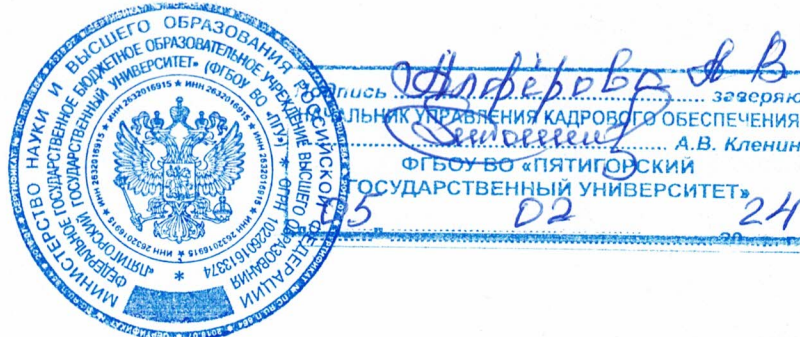 МИНИСТЕРСТВО НАУКИ И ВЫСШЕГО ОБРАЗОВАНИЯ РОССИЙСКОЙ ФЕДЕРАЦИИ
ФЕДЕРАЛЬНОЕ ГОСУДАРСТВЕННОЕ БЮДЖЕТНОЕ ОБРАЗОВАТЕЛЬНОЕ УЧРЕЖДЕНИЕ ВЫСШЕГО ОБРАЗОВАНИЯ
«ПЯТИГОРСКИЙ ГОСУДАРСТВЕННЫЙ УНИВЕРСИТЕТ» (ФГБОУ ВО «ПГУ») * ОГРН 1022601613374
* ИНН 2632016915 * ИНН 2632016915 * ИНН 2632016915 * ИНН 2632016915 * ИНН 2632016915 * ИНН 2632016915
подпись Алфёрова А В заверяю
ЧАЛЬНИК УПРАВЛЕНИЯ КАДРОВОГО ОБЕСПЕЧЕНИЯ
А.В. Кленин
ФГБОУ ВО «ПЯТИГОРСКИЙ
ГОСУДАРСТВЕННЫЙ УНИВЕРСИТЕТ»
05 02 20 24